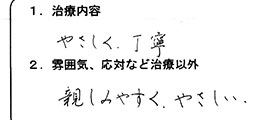 1．治療内容
やさしく、丁寧
2．雰囲気、応対など治療以外
親しみやすく、やさしい．